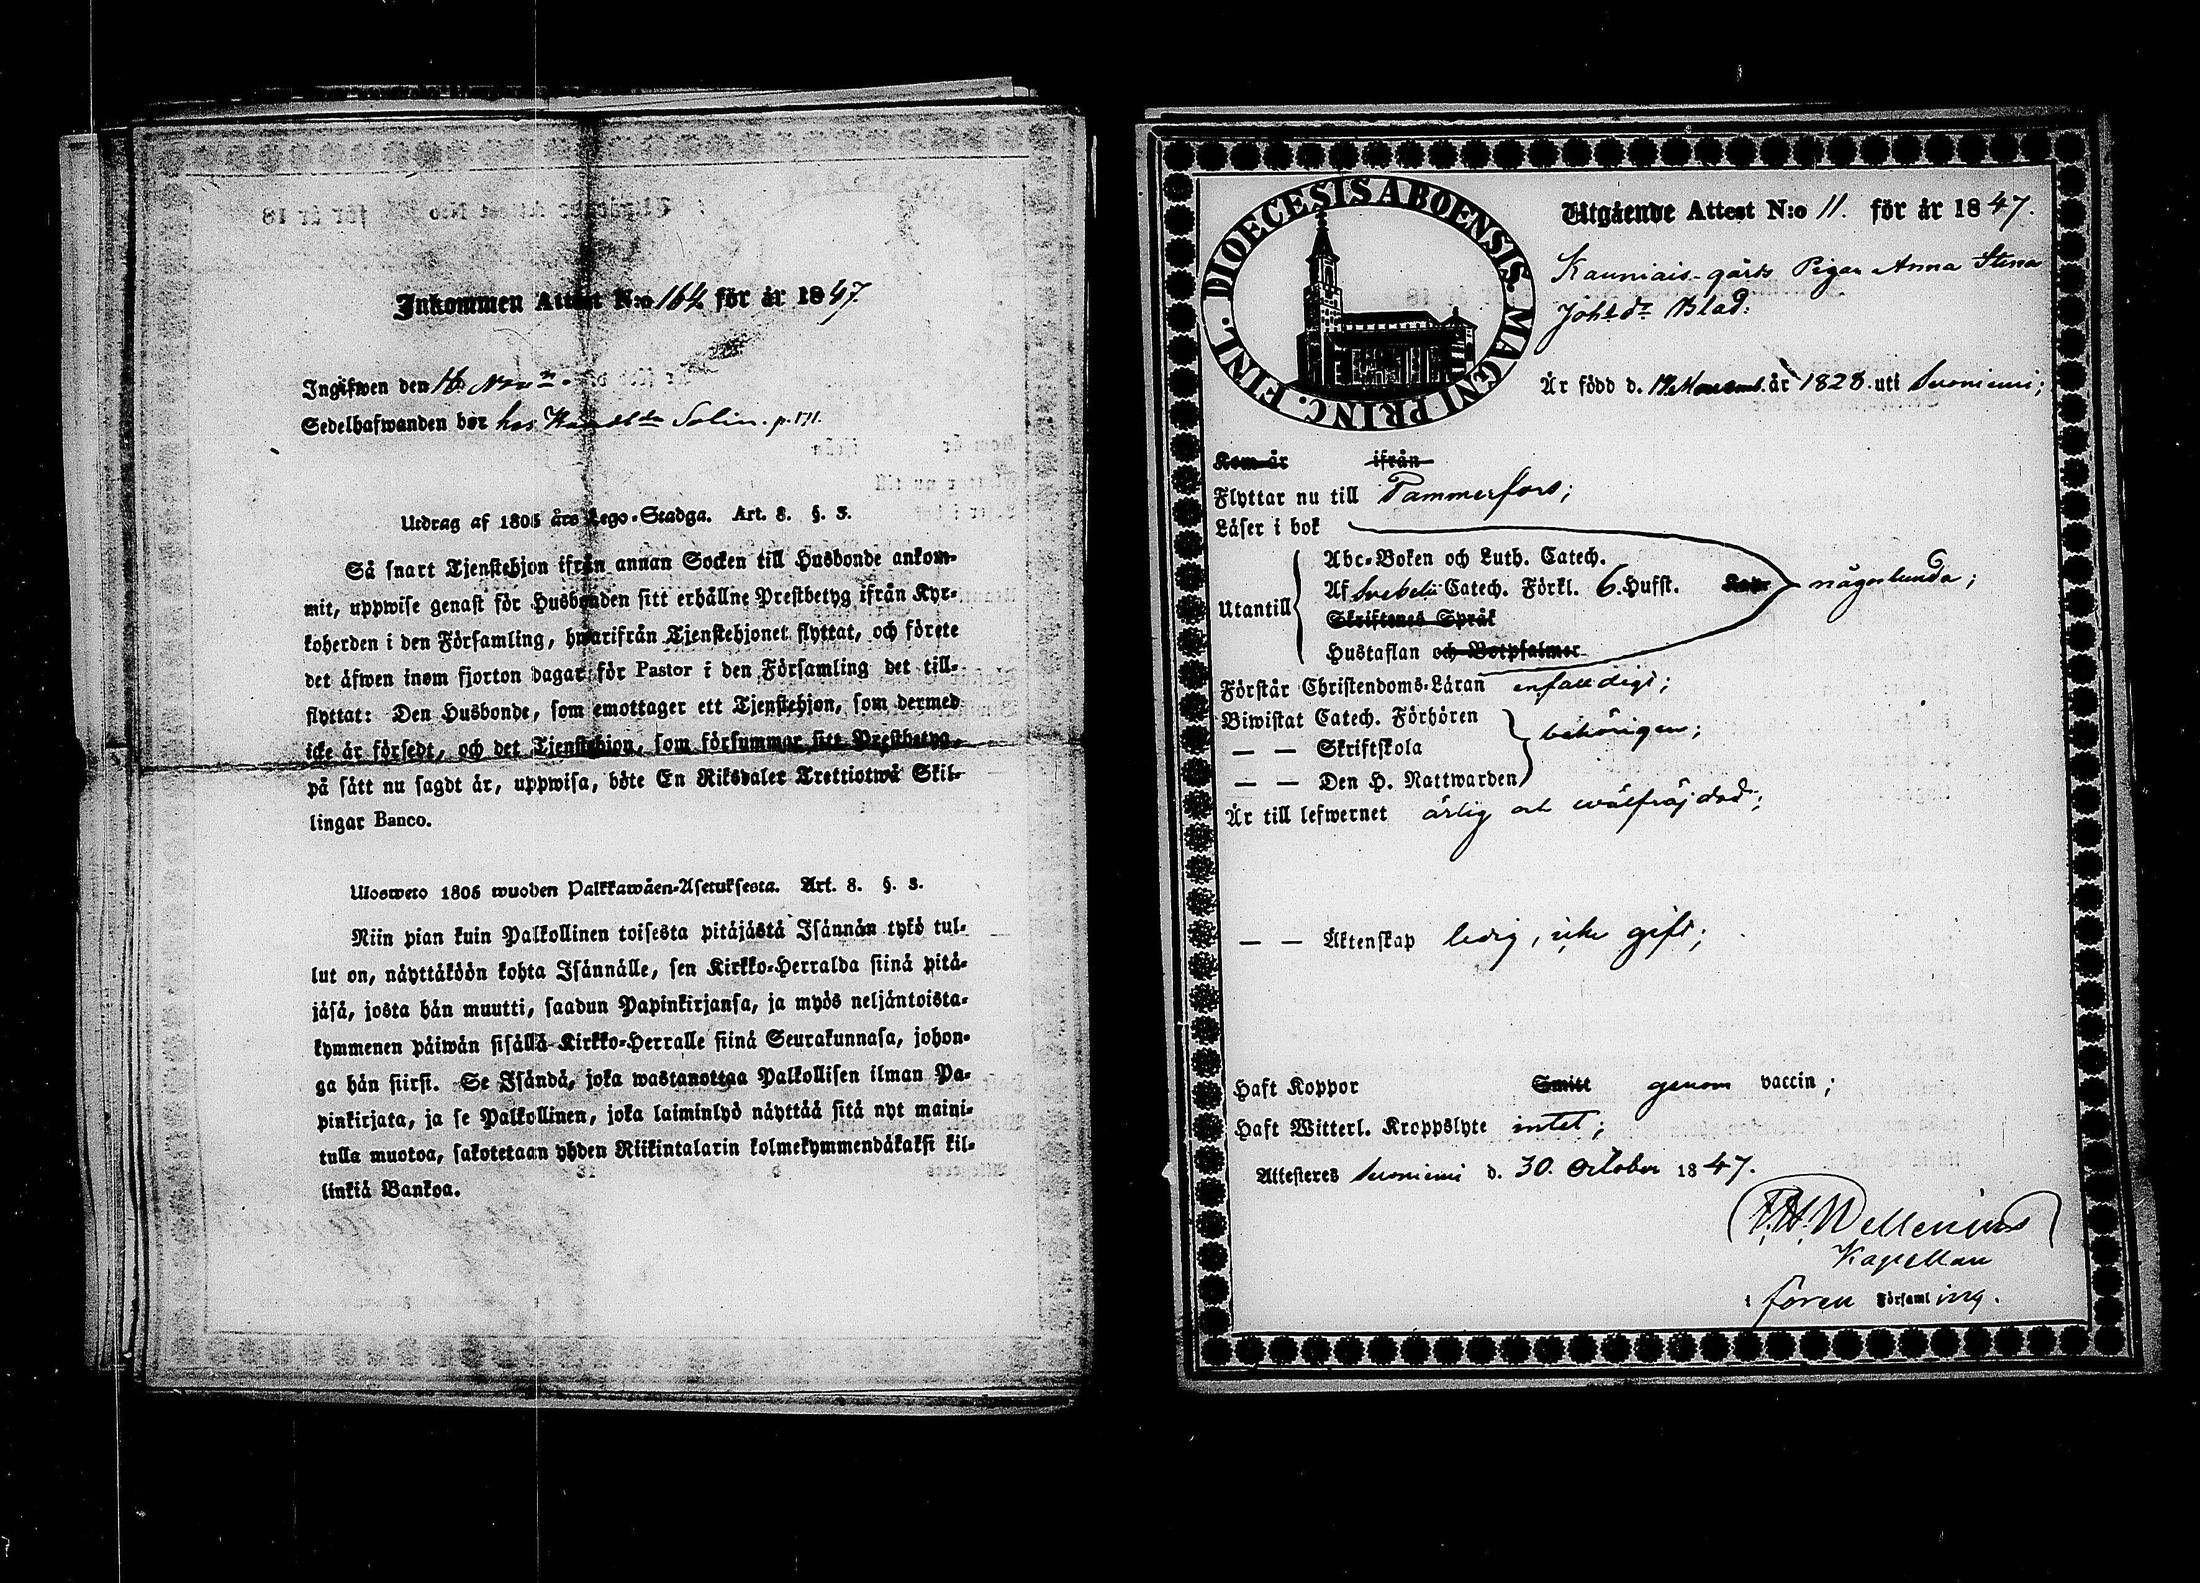 Inkommen Attest N:o 164 för år 1847
Ingifwen den 16 Nov.
Sedelhafwanden bor hos Solin. p. 171.
Utdrag af 1805 års Lego-Stadga. Art. 8. §. 3.
Så snart Tjenstehjon ifrån annan Socken till Husbonde ankom-
mit, uppwise genast för Husbonden sitt erhållne Prestbetyg ifrån Kyr-
koherden i den Församling, hwarifrån Tjenstehjonet flyttat, och förete
det äfwen inom fjorton dagar för Pastor i den Församling det till-
flyttat: Den Husbonde, som emottager ett Tjenstehjon, som dermed
icke är försedt, och det Tjenstehjon, som försummar sitt Prestbetyg,
på sätt nu sagdt är, uppwisa, böte En Riksdaler Trettiotwå Skil-
lingar Banco.
Uloswето 1805 wuoden Palkkawäen-Asetuksesta. Art. 8. §. 3.
Niin pian kuin Palkollinen toisesta pitäjästä Isännän tykö tul-
lut on, näyttäköön kohta Isännälle, sen Kirkko-Herralda siinä pitä-
jäsä, josta hän muutti, saadun Papinkirjansa, ja myös neljäntoista-
kymmenen päiwän sisällä Kirkko-Herralle siinä Seurakunnasa, johon-
ga hän siirsi. Se Isändä, joka wastanottaa Palkollisen ilman Pa-
pinkirjata, ja se Palkollinen, joka laiminlyö näyttää sitä nyt maini-
tulla muotoa, sakotetaan yhden Riikintalarin kolmekymmendäkaksi kil-
linkiä Bankoa.
DIOECESIS ABOENSIS. MAGNI PRINC. FINL.
Utgående Attest N:o 11. för år 1847.
Kauniais-gårds Pigan Anna Stina
Johsdr Blad:
Är född d. Novemb. år 1828. uti Suoniemi;
Kom år ifrån
Flyttar nu till Tammerfors;
Läser i bok
Abc-Boken och Luth. Catech.
Utantill Af Svebelii Catech. Förkl. 6. Hufst. någorlunda;
Skriftenes Språk
Hustaflan och Botpsalmer
Förstår Christendoms-Läran enfalldigt;
Biwistat Catech. Förhören
— — Skriftskola behörigen;
— — Den H. Nattwarden
Är till lefwernet ärlig och wälfräjdad;
— — Äktenskap ledig, icke gift;
Haft Koppor Smitt genom vaccin;
Haft Witterl. Kroppslyte intet;
Attesteres Suoniemi d. 30. October 1847.
F. H. Wellenius
Kapellan
i foren Församling.